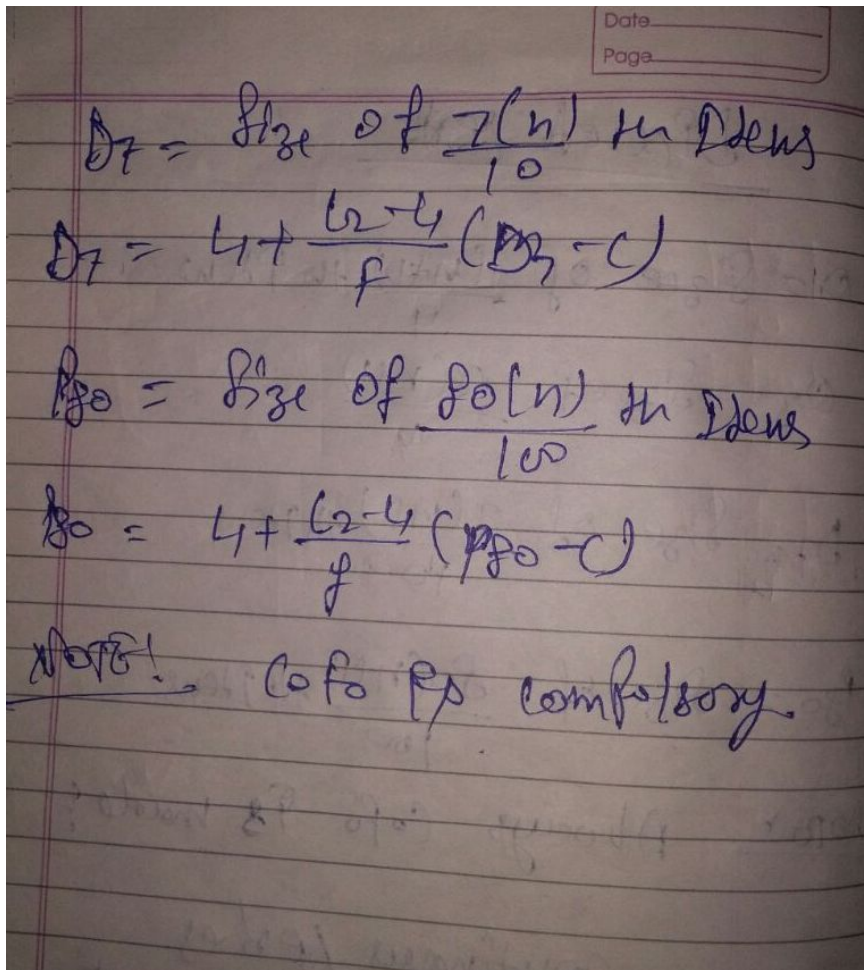 Date
Page
D7 = Size of 7(n)/10 th Items
D7 = L1 + (L2-L1)/f (D7 - C)
P80 = Size of 80(n)/100 th Items
P80 = L1 + (L2-L1)/f (P80 - C)
NOTE! Cofo is compolsory.